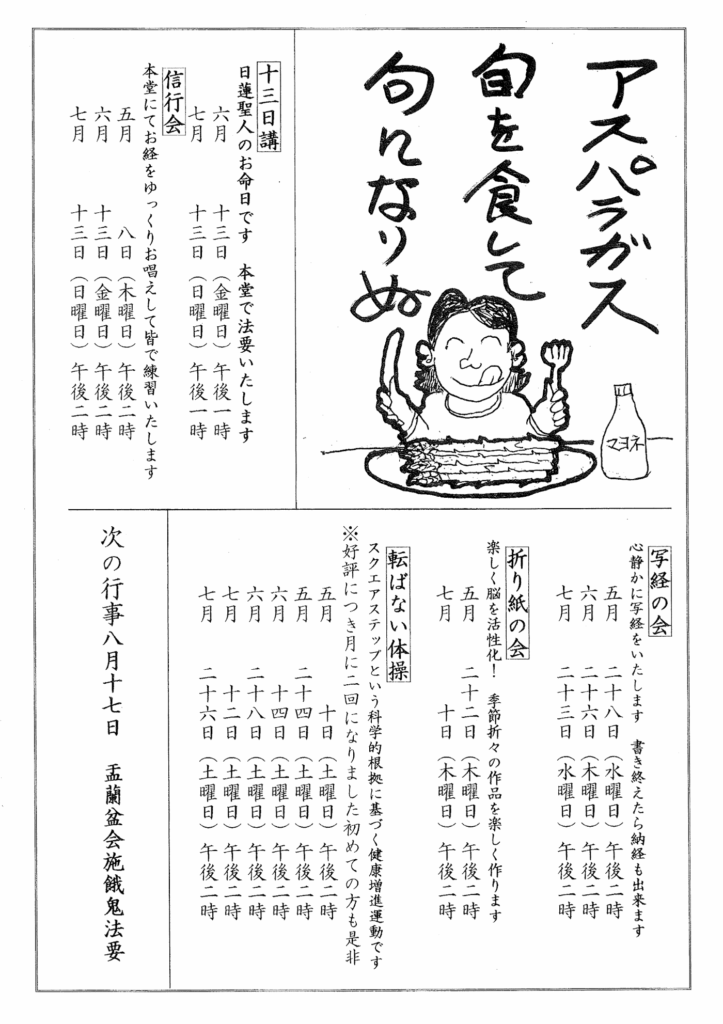 アスパラガス
旬を食して
句になりぬ
マヨネ
十三日講
日蓮聖人のお命日です　本堂で法要いたします
六月　十三日（金曜日）午後一時
七月　十三日（日曜日）午後一時
信行会
本堂にてお経をゆっくりお唱えして皆で練習いたします
五月　八日（木曜日）午後二時
六月　十三日（金曜日）午後二時
七月　十三日（日曜日）午後二時
写経の会
心静かに写経をいたします　書き終えたら納経も出来ます
五月　二十八日（水曜日）午後二時
六月　二十六日（木曜日）午後二時
七月　二十三日（水曜日）午後二時
折り紙の会
楽しく脳を活性化！　季節折々の作品を楽しく作ります
五月　二十二日（木曜日）午後二時
七月　十日（木曜日）午後二時
転ばない体操
スクエアステップという科学的根拠に基づく健康増進運動です
※好評につき月に二回になりました初めての方も是非
五月　十日（土曜日）午後二時
五月　二十四日（土曜日）午後二時
六月　十四日（土曜日）午後二時
六月　二十八日（土曜日）午後二時
七月　十二日（土曜日）午後二時
七月　二十六日（土曜日）午後二時
次の行事八月十七日　盂蘭盆会施餓鬼法要